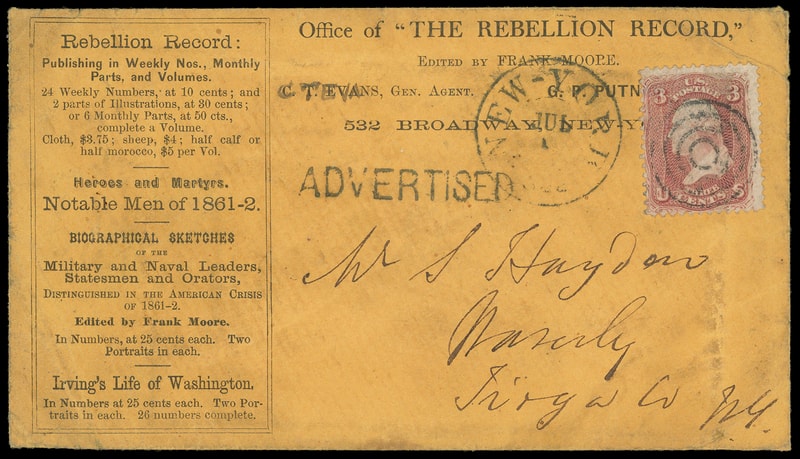 Rebellion Record:
Publishing in Weekly Nos., Monthly
Parts, and Volumes.
24 Weekly Numbers, at 10 cents; and
2 parts of Illustrations, at 30 cents;
or 6 Monthly Parts, at 50 cts.,
complete a Volume.
Cloth, $3.75; sheep, $4; half calf or
half morocco, $5 per Vol.
Heroes and Martyrs.
Notable Men of 1861-2.
BIOGRAPHICAL SKETCHES
OF THE
Military and Naval Leaders,
Statesmen and Orators,
DISTINGUISHED IN THE AMERICAN CRISIS
OF 1861-2.
Edited by Frank Moore.
In Numbers, at 25 cents each. Two
Portraits in each.
Irving's Life of Washington.
In Numbers at 25 cents each. Two Por-
traits in each. 26 numbers complete.
Office of "THE REBELLION RECORD,"
EDITED BY FRANK MOORE.
C. T. EVANS, GEN. AGENT. G. P. PUTN
532 BROADWAY, NEW-YO
NEW-YORK
JUL
ADVERTISED
3 U.S. 3
POSTAGE
CENTS
Mr S Hayden
Waverly
Tioga Co N.Y.